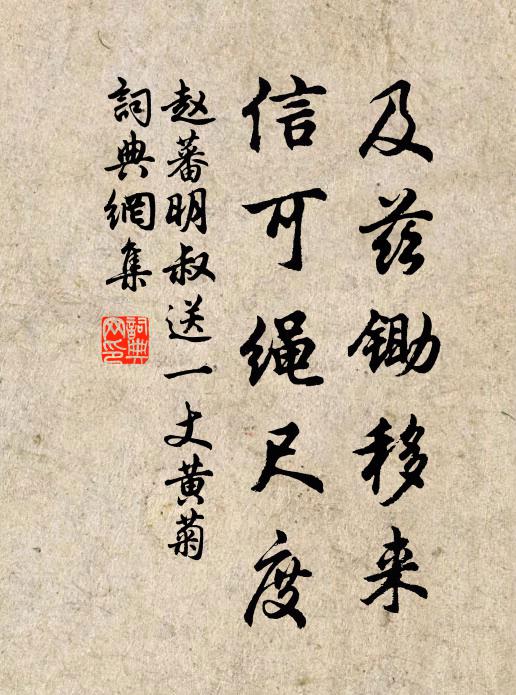 及兹锄移来
信可绳尺度
赵蕃明叔送一丈黄菊
詞典網集
詞典
网印